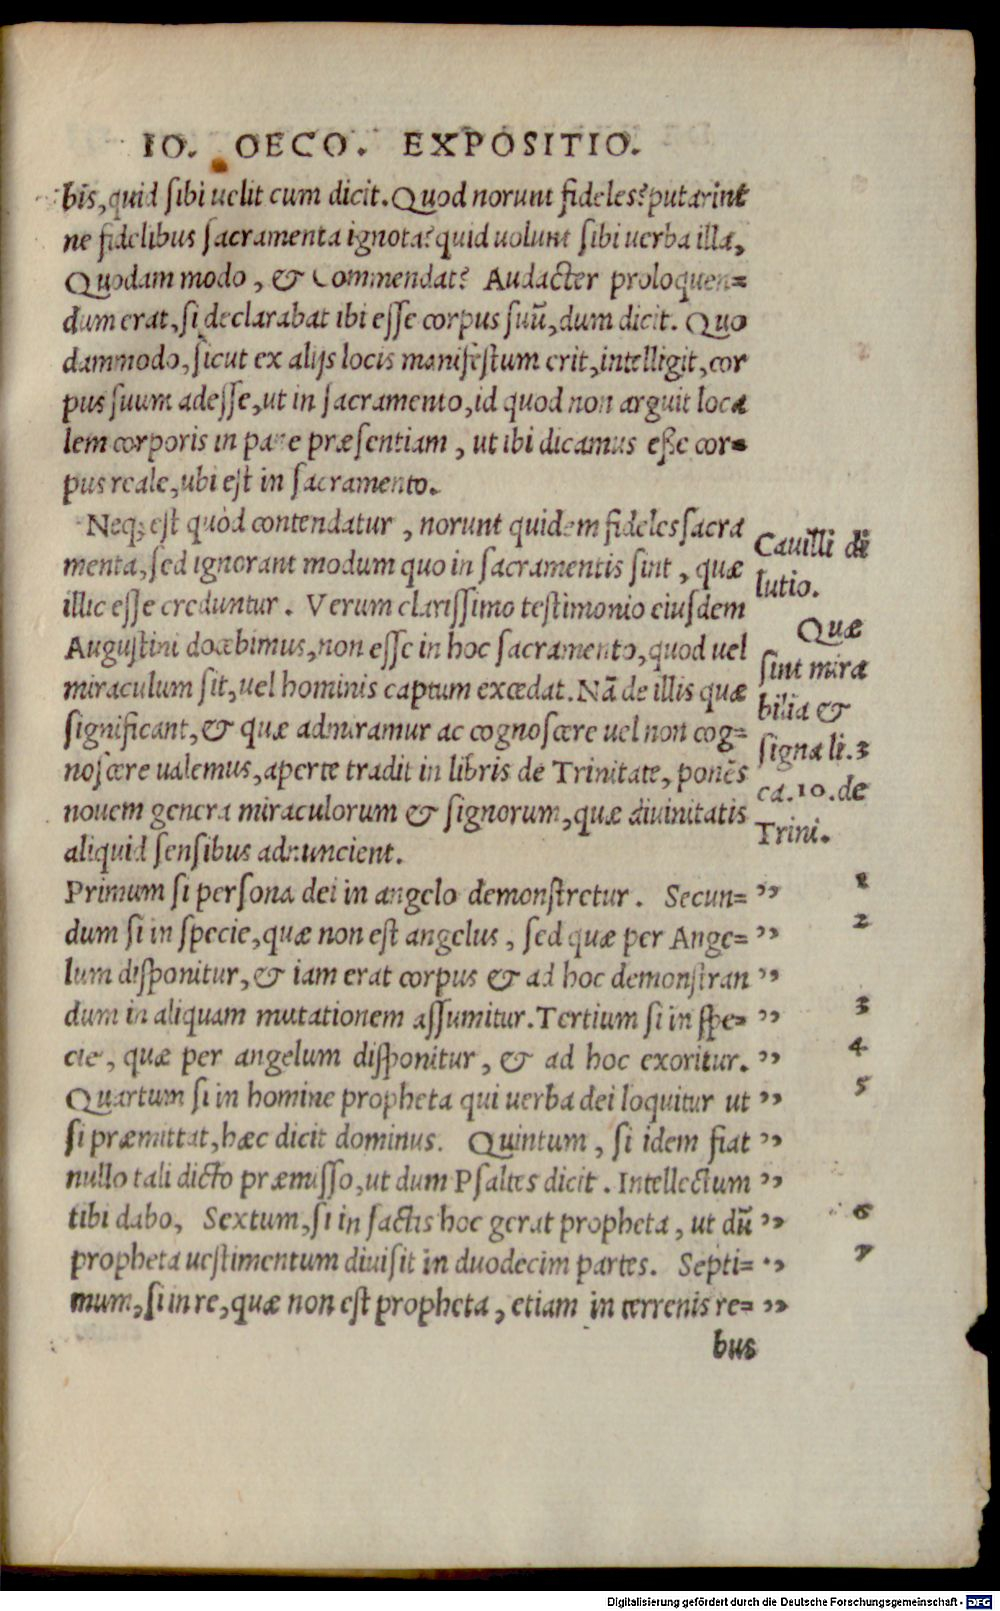 IO. OECO. EXPOSITIO.
bis, quid sibi uelit cum dicit. Quod norunt fideles? putarint
ne fidelibus sacramenta ignota? quid uolunt sibi uerba illa,
Quodam modo, & Commendat? Audacter proloquen=
dum erat, si declarabat ibi esse corpus suũ, dum dicit. Quo
dammodo, sicut ex alijs locis manifestum erit, intelligit, cor
pus suum adesse, ut in sacramento, id quod non arguit loca
lem corporis in pane præsentiam, ut ibi dicamus esse cor=
pus reale, ubi est in sacramento.
Neq; est quòd contendatur, norunt quidem fideles sacra
menta, sed ignorant modum quo in sacramentis sint, quæ
illic esse creduntur. Verum clarissimo testimonio eiusdem
Augustini docebimus, non esse in hoc sacramento, quod uel
miraculum sit, uel hominis captum excedat. Nã de illis quæ
significant, & quæ admiramur ac cognoscere uel non cog=
noscere ualemus, aperte tradit in libris de Trinitate, ponẽs
nouem genera miraculorum & signorum, quæ diuinitatis
aliquid sensibus adnuncient.
Cauilli di
lutio.
Quæ
sint mira
bilia &
signa li. 3
ca. 10. de
Trini.
Primum si persona dei in angelo demonstretur. Secun= ,, 1
dum si in specie, quæ non est angelus, sed quæ per Ange= ,, 2
lum disponitur, & iam erat corpus & ad hoc demonstran ,,
dum in aliquam mutationem assumitur. Tertium si in spe= ,, 3
cie, quæ per angelum disponitur, & ad hoc exoritur. ,, 4
Quartum si in homine propheta qui uerba dei loquitur ut ,, 5
si præmittat, hæc dicit dominus. Quintum, si idem fiat ,,
nullo tali dicto præmisso, ut dum Psaltes dicit. Intellectum ,,
tibi dabo, Sextum, si in factis hoc gerat propheta, ut dũ ,, 6
propheta uestimentum diuisit in duodecim partes. Septi= ,, 7
mum, si in re, quæ non est propheta, etiam in terrenis re= ,,
bus
Digitalisierung gefördert durch die Deutsche Forschungsgemeinschaft - DFG